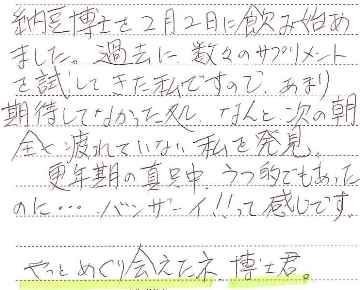 納豆博士を2月2日に飲み始め
ました。過去に、数々のサプリメント
を試してきた私ですので、あまり
期待してなかった処、なんと次の朝
全く疲れていない私を発見。
更年期の真只中、うつ的でもあった
のに… バンザーイ!!って感じです。
やっとめぐり会えたネ、博士君。